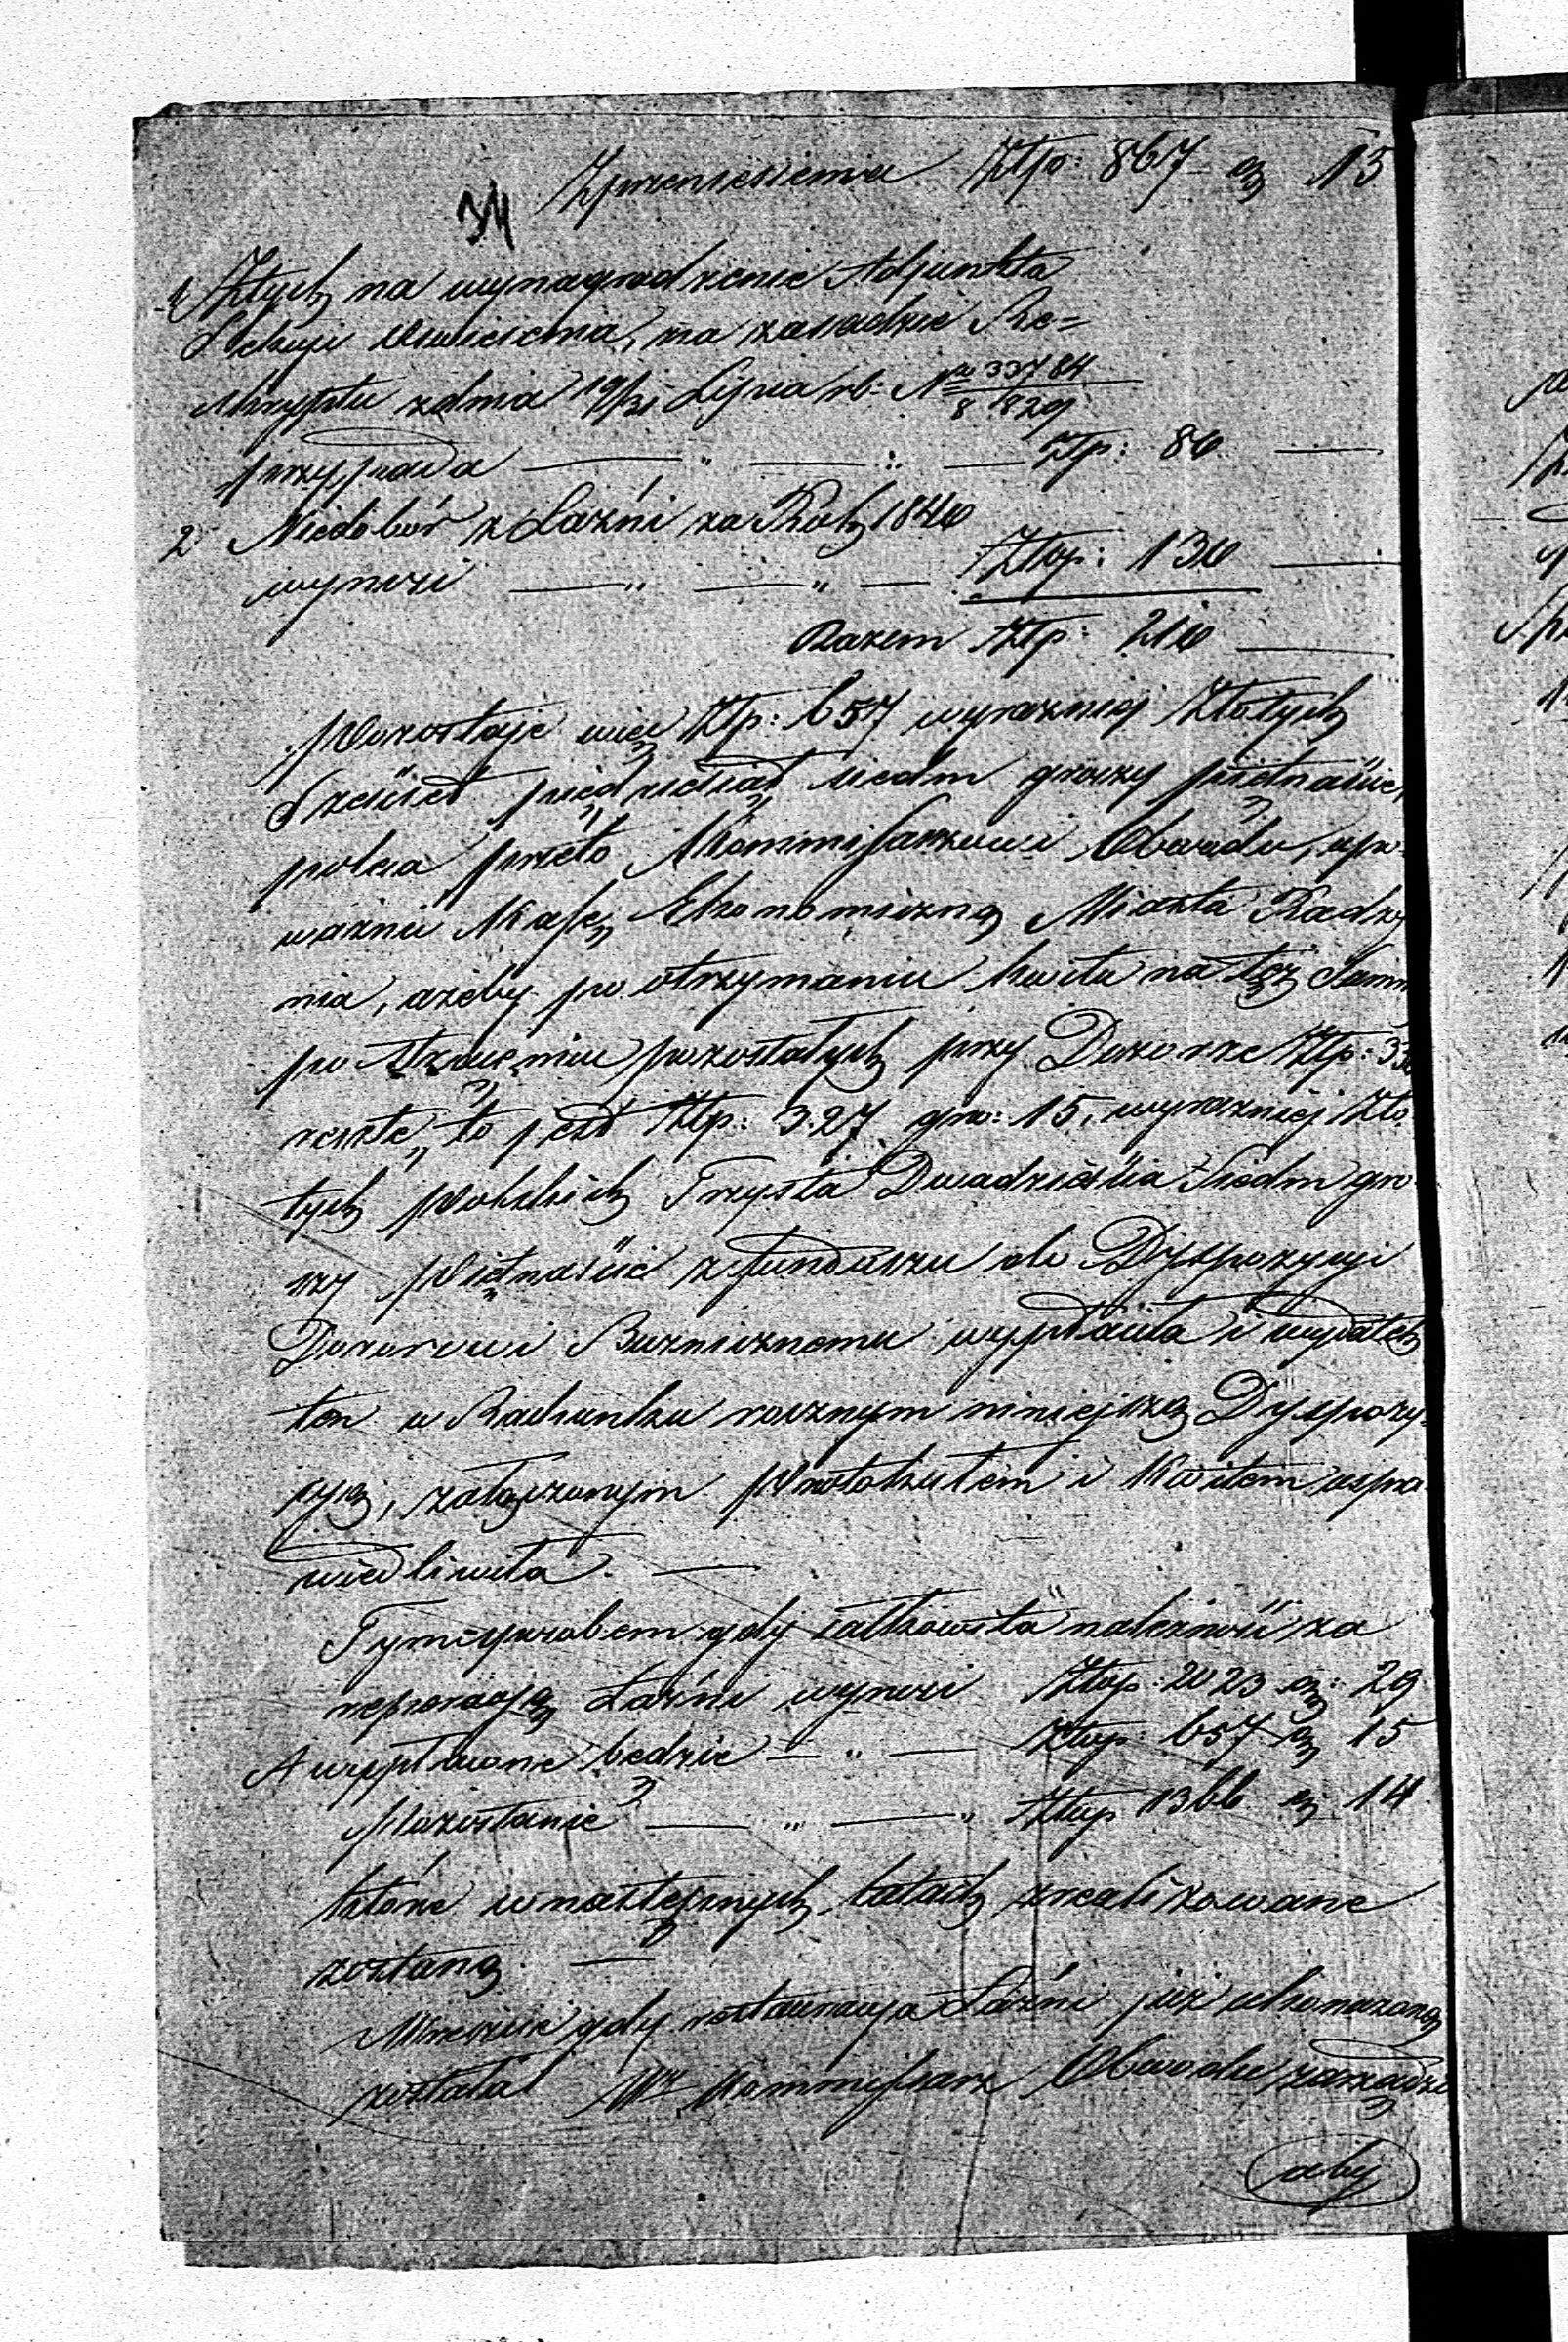 Zprzeniesienia Złtp: 867 gr 15
34
1 Ztych na wynagrodzenie Adjunkta
Sekcyi Oswiecenia, na zasadzie Re=
skryptu zdnia 19/31 Lipca rb: Nro 33784/8829
przypada — " — " — Złp: 80 —
2 Niedobór z Łaźni za Rok 1840
wynosi — " — " — Złtp: 130 —
Razem Złtp: 210 —
Pozostaje więc Złp: 657 wyrazniej Złotych
Sześćset pięćdziesiąt siedm groszy piętnaście,
poleca przeto Kommissarzowi Obwodu, upo-
ważni Kassę Ekonomiczną Miasta Radzy
nia, ażeby po otrzymaniu kwitu na tęż Summ
po strąceniu pozostałych przy Dozorze Złp: 330
resztę, to jest Złp: 327 gro: 15, wyrazniej Zło
tych Polskich Trzysta Dwadzieścia Siedm gro
szy Piętnaście z funduszu do Dyspozycyi
Dozorowi Bużnicznemu wypłaciła i wydatek
ten w Rachunku rocznym niniejszą Dyspozy-
cyą, załączonym Protokułem i Kwitem uspra-
wiedliwiła. —
Tym sposobem gdy całkowita należność za
reperacyą Łaźni wynosi Złtp: 2023 gr: 29
A wypłacone będzie — " — Złtp: 657 gr 15
Pozostanie — " — " Złtp 1366 gr 14
które w następnych latach zrealizowane
zostaną. —
Wreszcie gdy restauracya Łaźni już ukonczoną
została Wny Kommissarz Obwodu zarządzi
aby